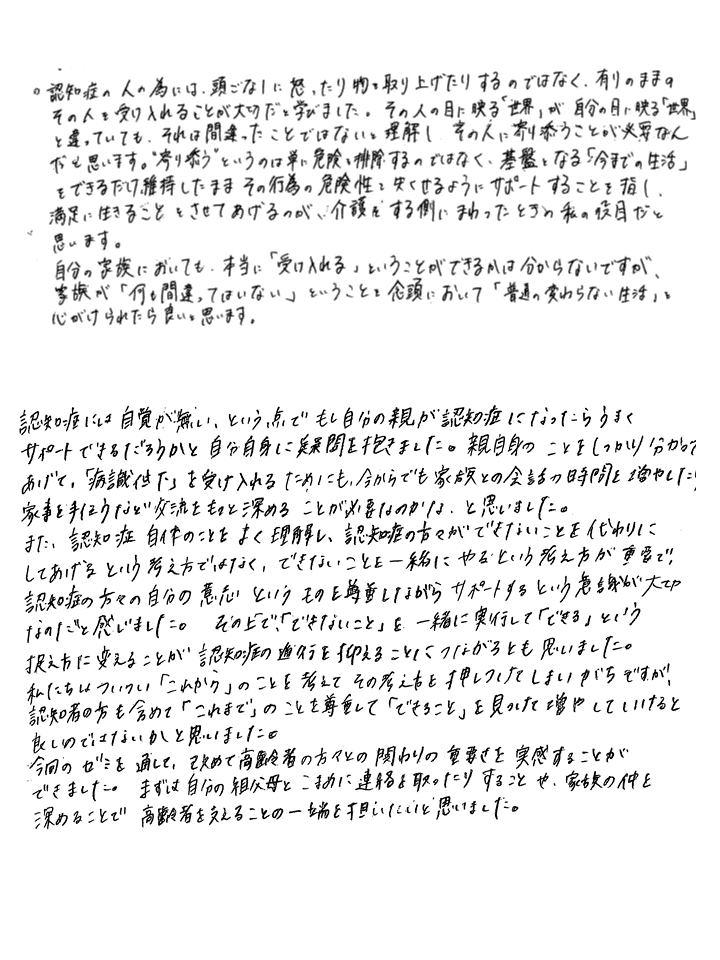 。認知症の人の為には、頭ごなしに怒ったり物を取り上げたりするのではなく、有りのままの
その人を受け入れることが大切だと学びました。その人の目に映る「世界」が自分の目に映る「世界」
と違っていても、それは間違ったことではないと理解し、その人に寄り添うことが必要なん
だと思います。"寄り添う"というのは単に危険を排除するのではなく、基盤となる「今までの生活」
をできるだけ維持したままその行為の危険性を失くせるようにサポートすることを指し、
満足に生きることをさせてあげるのが、介護をする側にまわったときの私の役目だと
思います。
自分の家族においても、本当に「受け入れる」ということができるかは分からないですが、
家族が「何も間違ってはいない」ということを念頭において「普通の変わらない生活」を
心がけられたら良いと思います。
認知症には自覚が無い、という点でもし自分の親が認知症になったらうまく
サポートできるだろうかと自分自身に疑問を抱きました。親自身のことをしっかり分かって
あげて、「病識低下」を受け入れるためにも、今からでも家族との会話の時間を増やしたり
家事を手伝うなど交流をもっと深めることが必要なのかな、と思いました。
また、認知症自体のことをよく理解し、認知症の方々ができないことを代わりに
してあげるという考え方ではなく、できないことを一緒にやるという考え方が重要で、
認知症の方々の自分の意志というものを尊重しながらサポートするという意識が大切
なのだと感じました。その上で、「できないこと」を一緒に実行して「できる」という
捉え方に変えることが認知症の進行を抑えることにつながるとも思いました。
私たちはついつい「これから」のことを考えてその考え方を押しつけてしまいがちですが、
認知者の方も含めて「これまで」のことを尊重して「できること」を見つけて増やしていけると
良いのではないかと思いました。
今回のゼミを通して、改めて高齢者の方々との関わりの重要さを実感することが
できました。まずは自分の祖父母とこまめに連絡を取ったりすることや、家族の仲を
深めることで高齢者を支えることの一端を担いたいと思いました。